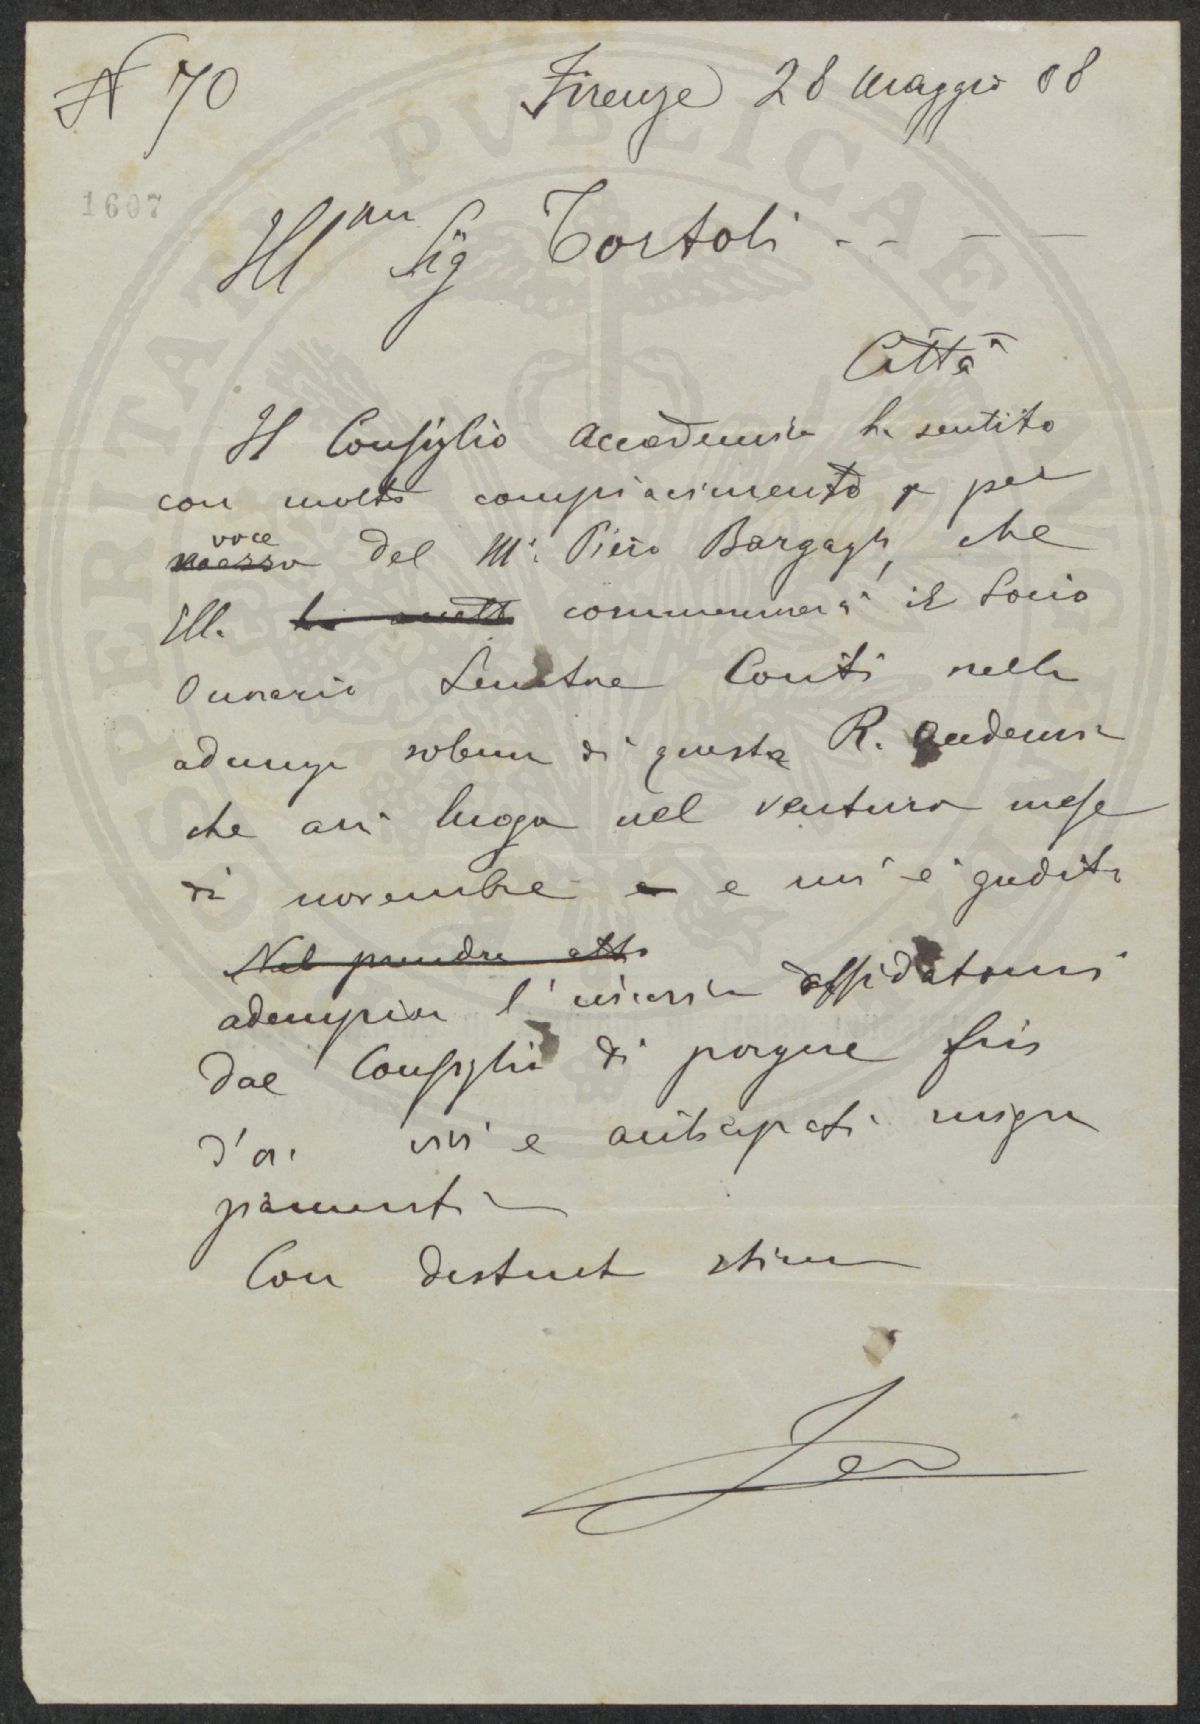 N 70
Firenze 28 Maggio 88
1607
Ill mo Sig Tortoli - - - -
Città
Il Consiglio Accademia ha sentito
con molto compiacimento per
voce
mezzo del M. Piero Bargagli, che
Ella ha commemorerà il Socio
Onorario Senatore Conti nella
adunza solenne di questa R. Accademia
che avrà luogo nel venturo mese
di novembre e e mi è gradito
Nel prendere atto
adempiere l'incarico affidatomi
dal Consiglio di porgere fin
d'ora vivi e anticipati ringra
ziamenti
Con distinta stima